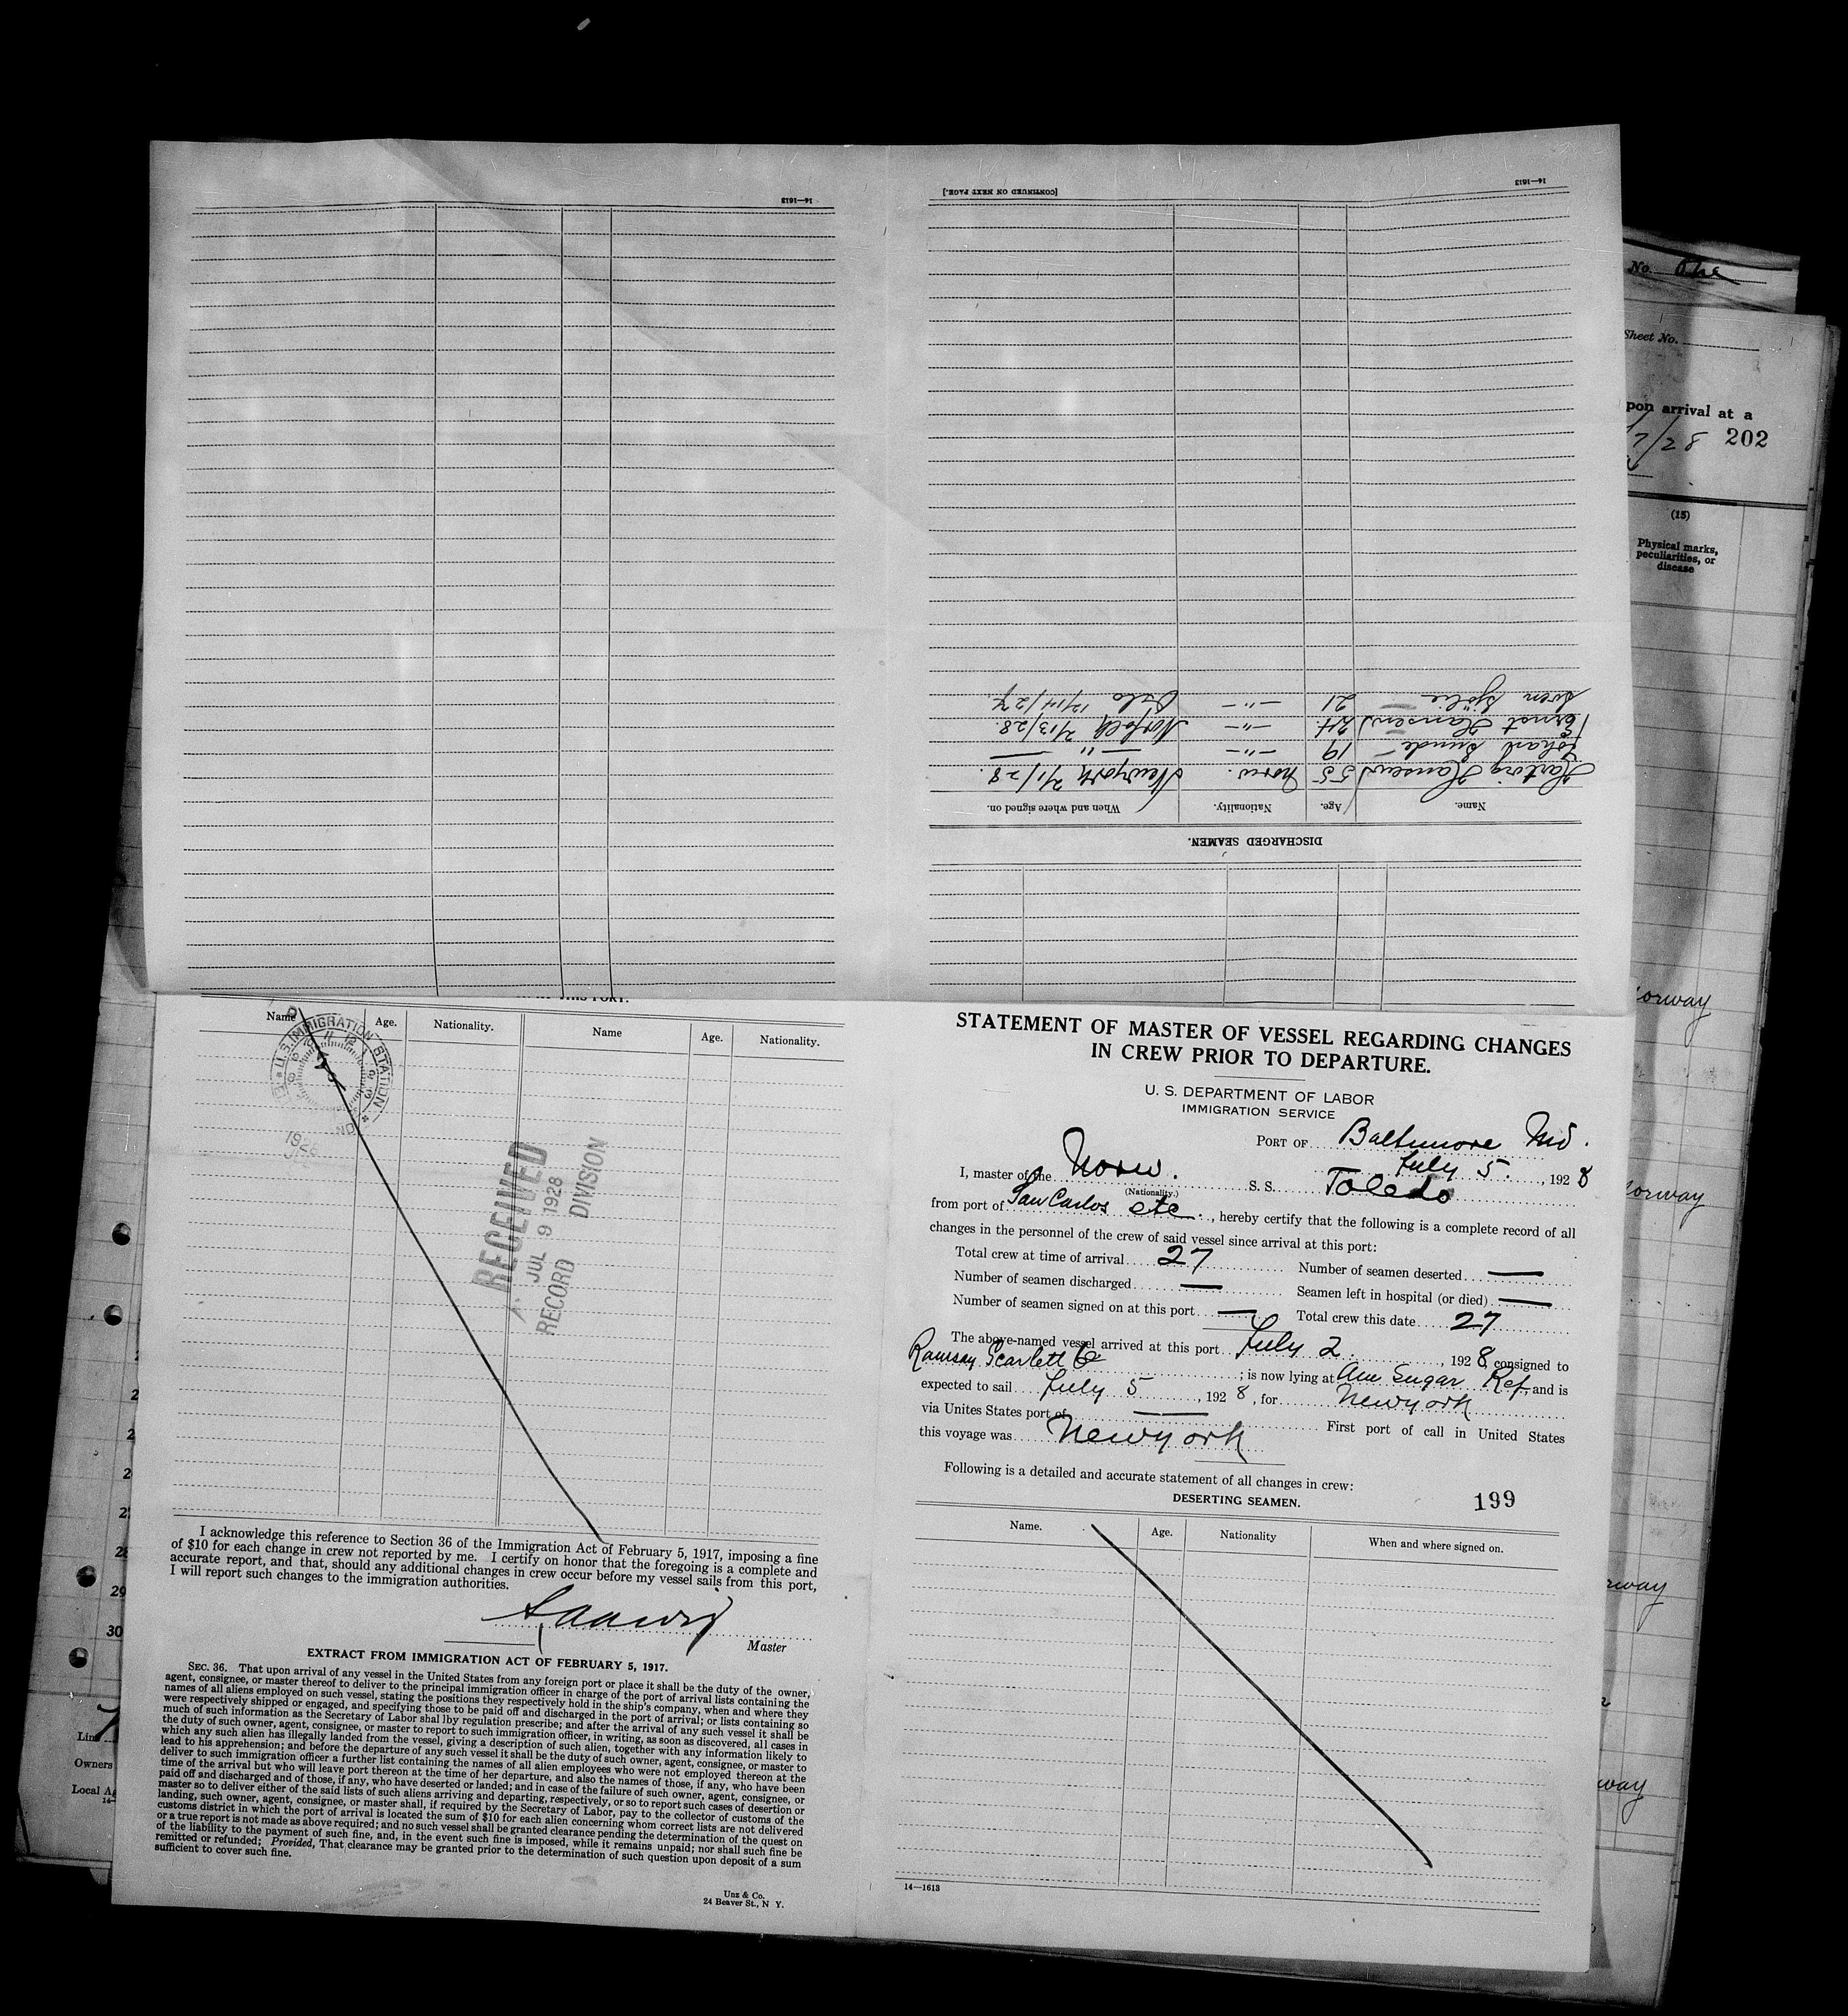 14—1613
[CONTINUED ON NEXT PAGE.]
14—1613
Sven Sjölie — 21 —"— Oslo 12/14/27.
Ernst Hansen 24. —"— Norfolk 2/13/28.
Johan Sunde — 19 —"— — " —
Hartvig Hansen 55 Norw. Newyork 2/1/28.
Name. Age. Nationality. When and where signed on.
DISCHARGED SEAMEN.
No. One
Sheet No.
pon arrival at a
202
(15)
Physical marks,
peculiarities, or
disease
orway
orway
rway
way
THIS PORT.
Name Age. Nationality. Name Age. Nationality.
U. S. IMMIGRATION STATION
1928
RECEIVED
JUL 9 1928
RECORD DIVISION
I acknowledge this reference to Section 36 of the Immigration Act of February 5, 1917, imposing a fine
of $10 for each change in crew not reported by me. I certify on honor that the foregoing is a complete and
accurate report, and that, should any additional changes in crew occur before my vessel sails from this port,
I will report such changes to the immigration authorities.
Master
EXTRACT FROM IMMIGRATION ACT OF FEBRUARY 5, 1917.
SEC. 36. That upon arrival of any vessel in the United States from any foreign port or place it shall be the duty of the owner,
agent, consignee, or master thereof to deliver to the principal immigration officer in charge of the port of arrival lists containing the
names of all aliens employed on such vessel, stating the positions they respectively hold in the ship's company, when and where they
were respectively shipped or engaged, and specifying those to be paid off and discharged in the port of arrival; or lists containing so
much of such information as the Secretary of Labor shal lby regulation prescribe; and after the arrival of any such vessel it shall be
the duty of such owner, agent, consignee, or master to report to such immigration officer, in writing, as soon as discovered, all cases in
which any such alien has illegally landed from the vessel, giving a description of such alien, together with any information likely to
lead to his apprehension; and before the departure of any such vessel it shall be the duty of such owner, agent, consignee, or master to
deliver to such immigration officer a further list containing the names of all alien employees who were not employed thereon at the
time of the arrival but who will leave port thereon at the time of her departure, and also the names of those, if any, who have been
paid off and discharged and of those, if any, who have deserted or landed; and in case of the failure of such owner, agent, consignee, or
master so to deliver either of the said lists of such aliens arriving and departing, respectively, or so to report such cases of desertion or
landing, such owner, agent, consignee, or master shall, if required by the Secretary of Labor, pay to the collector of customs of the
customs district in which the port of arrival is located the sum of $10 for each alien concerning whom correct lists are not delivered
or a true report is not made as above required; and no such vessel shall be granted clearance pending the determination of the quest on
of the liability to the payment of such fine, and, in the event such fine is imposed, while it remains unpaid; nor shall such fine be
remitted or refunded; Provided, That clearance may be granted prior to the determination of such question upon deposit of a sum
sufficient to cover such fine.
Unz & Co.
24 Beaver St., N Y.
28
29
30
Owners
Local Ag
STATEMENT OF MASTER OF VESSEL REGARDING CHANGES
IN CREW PRIOR TO DEPARTURE.
U. S. DEPARTMENT OF LABOR
IMMIGRATION SERVICE
PORT OF Baltimore Md.
July 5., 1928
I, master of the Norw. S. S. Toledo
(Nationality.)
from port of San Carlos etc., hereby certify that the following is a complete record of all
changes in the personnel of the crew of said vessel since arrival at this port:
Total crew at time of arrival 27 Number of seamen deserted —
Number of seamen discharged — Seamen left in hospital (or died) —
Number of seamen signed on at this port — Total crew this date 27
The above-named vessel arrived at this port July 2., 1928, consigned to
Ramsay Scarlett Co; is now lying at Am Sugar Ref and is
expected to sail July 5, 1928, for Newyork
via Unites States port of — First port of call in United States
this voyage was Newyork
Following is a detailed and accurate statement of all changes in crew:
DESERTING SEAMEN.
199
Name. Age. Nationality When and where signed on.
14—1613